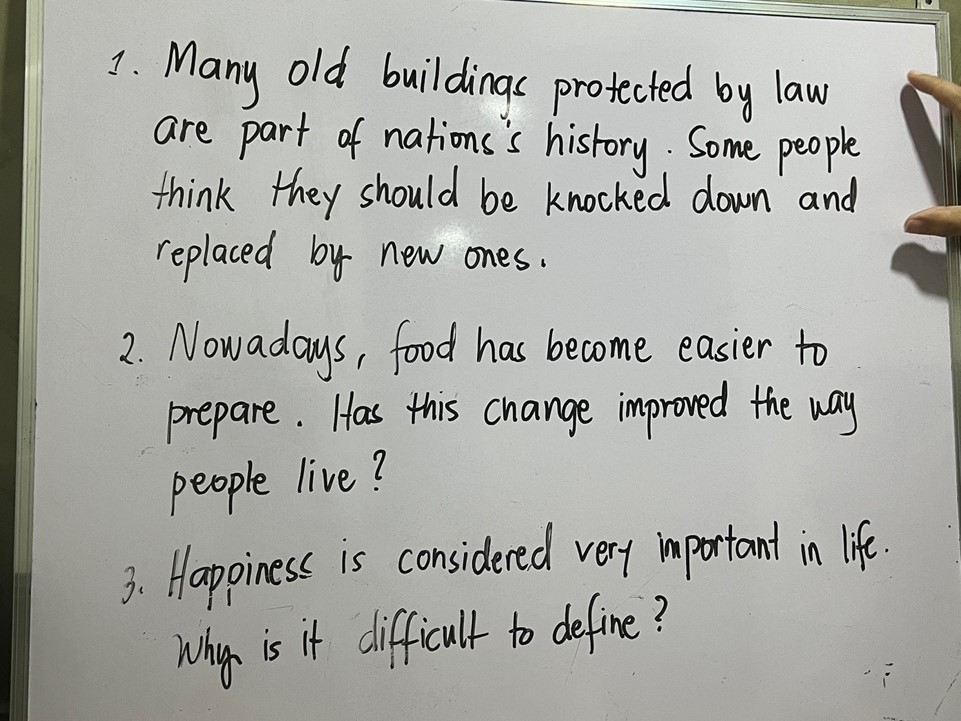 1. Many old buildings protected by law
are part of nations's history. Some people
think they should be knocked down and
replaced by new ones.
2. Nowadays, food has become easier to
prepare. Has this change improved the way
people live?
3. Happiness is considered very important in life.
Why is it difficult to define?